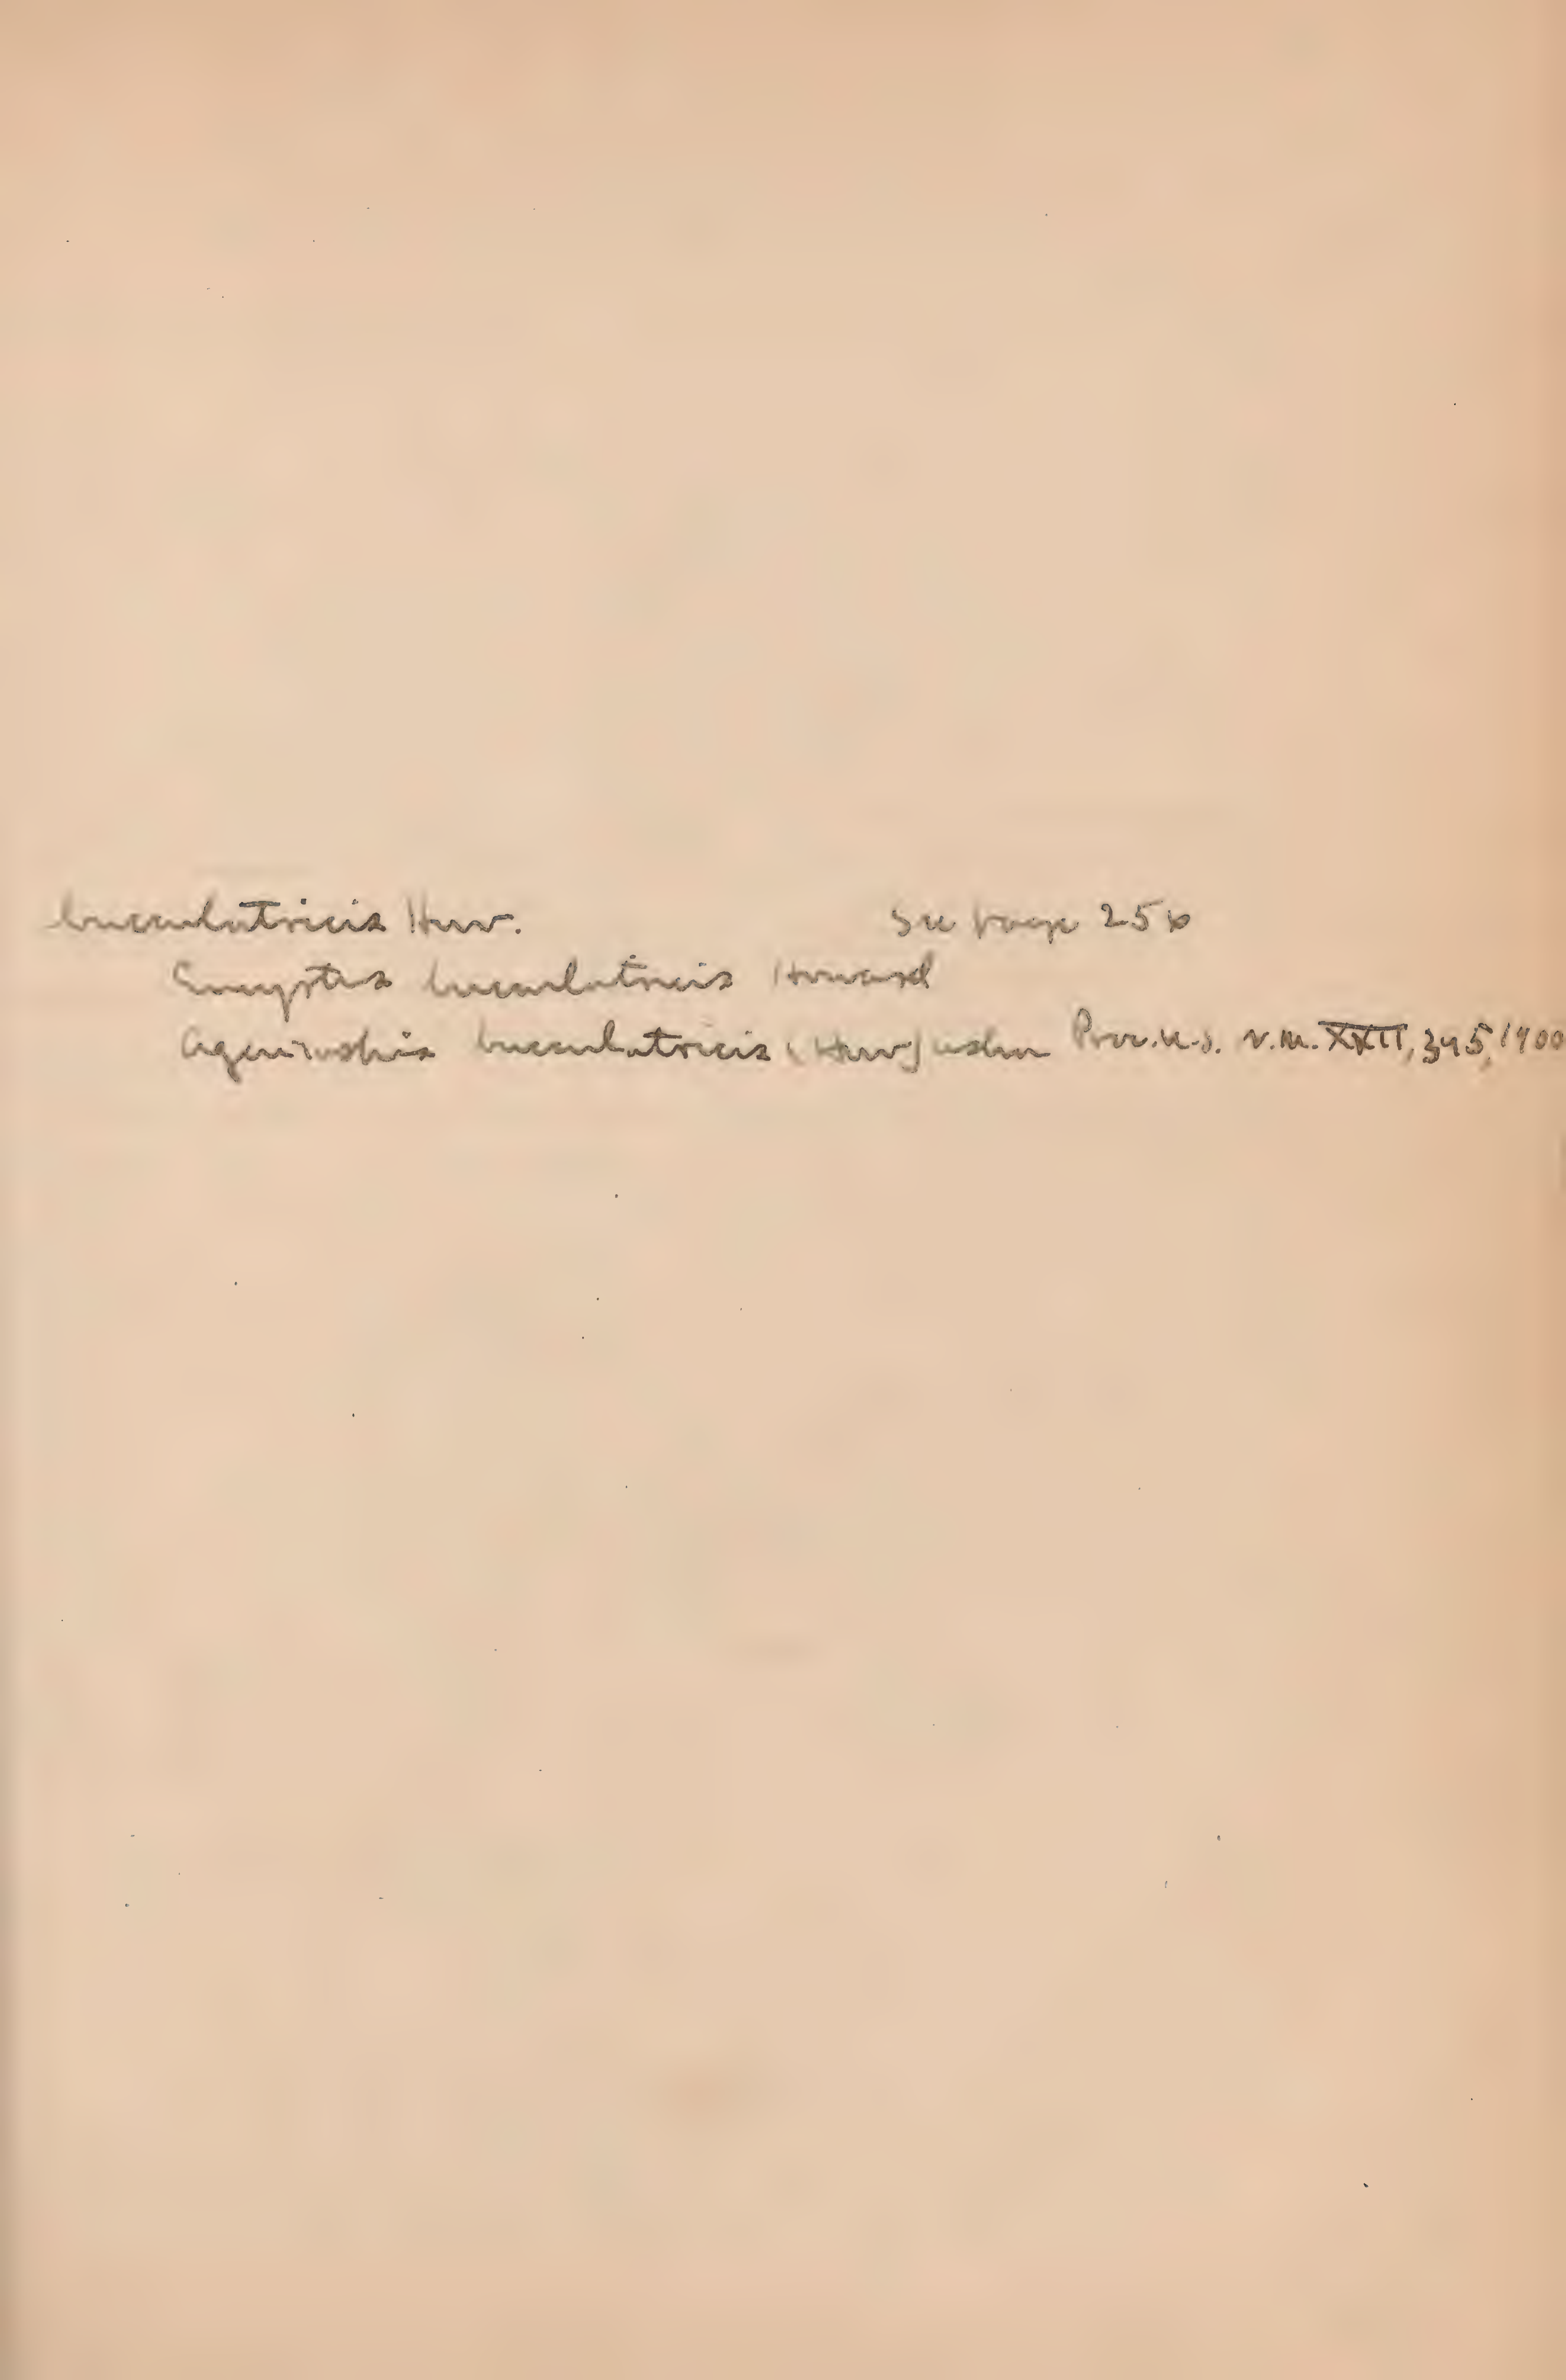 bucculatricis How. See page 256
Encyrtus bucculatricis Howard
Ageniaspis bucculatricis (How) Ashm Proc. U.S. N.M. XXII, 345, 1900